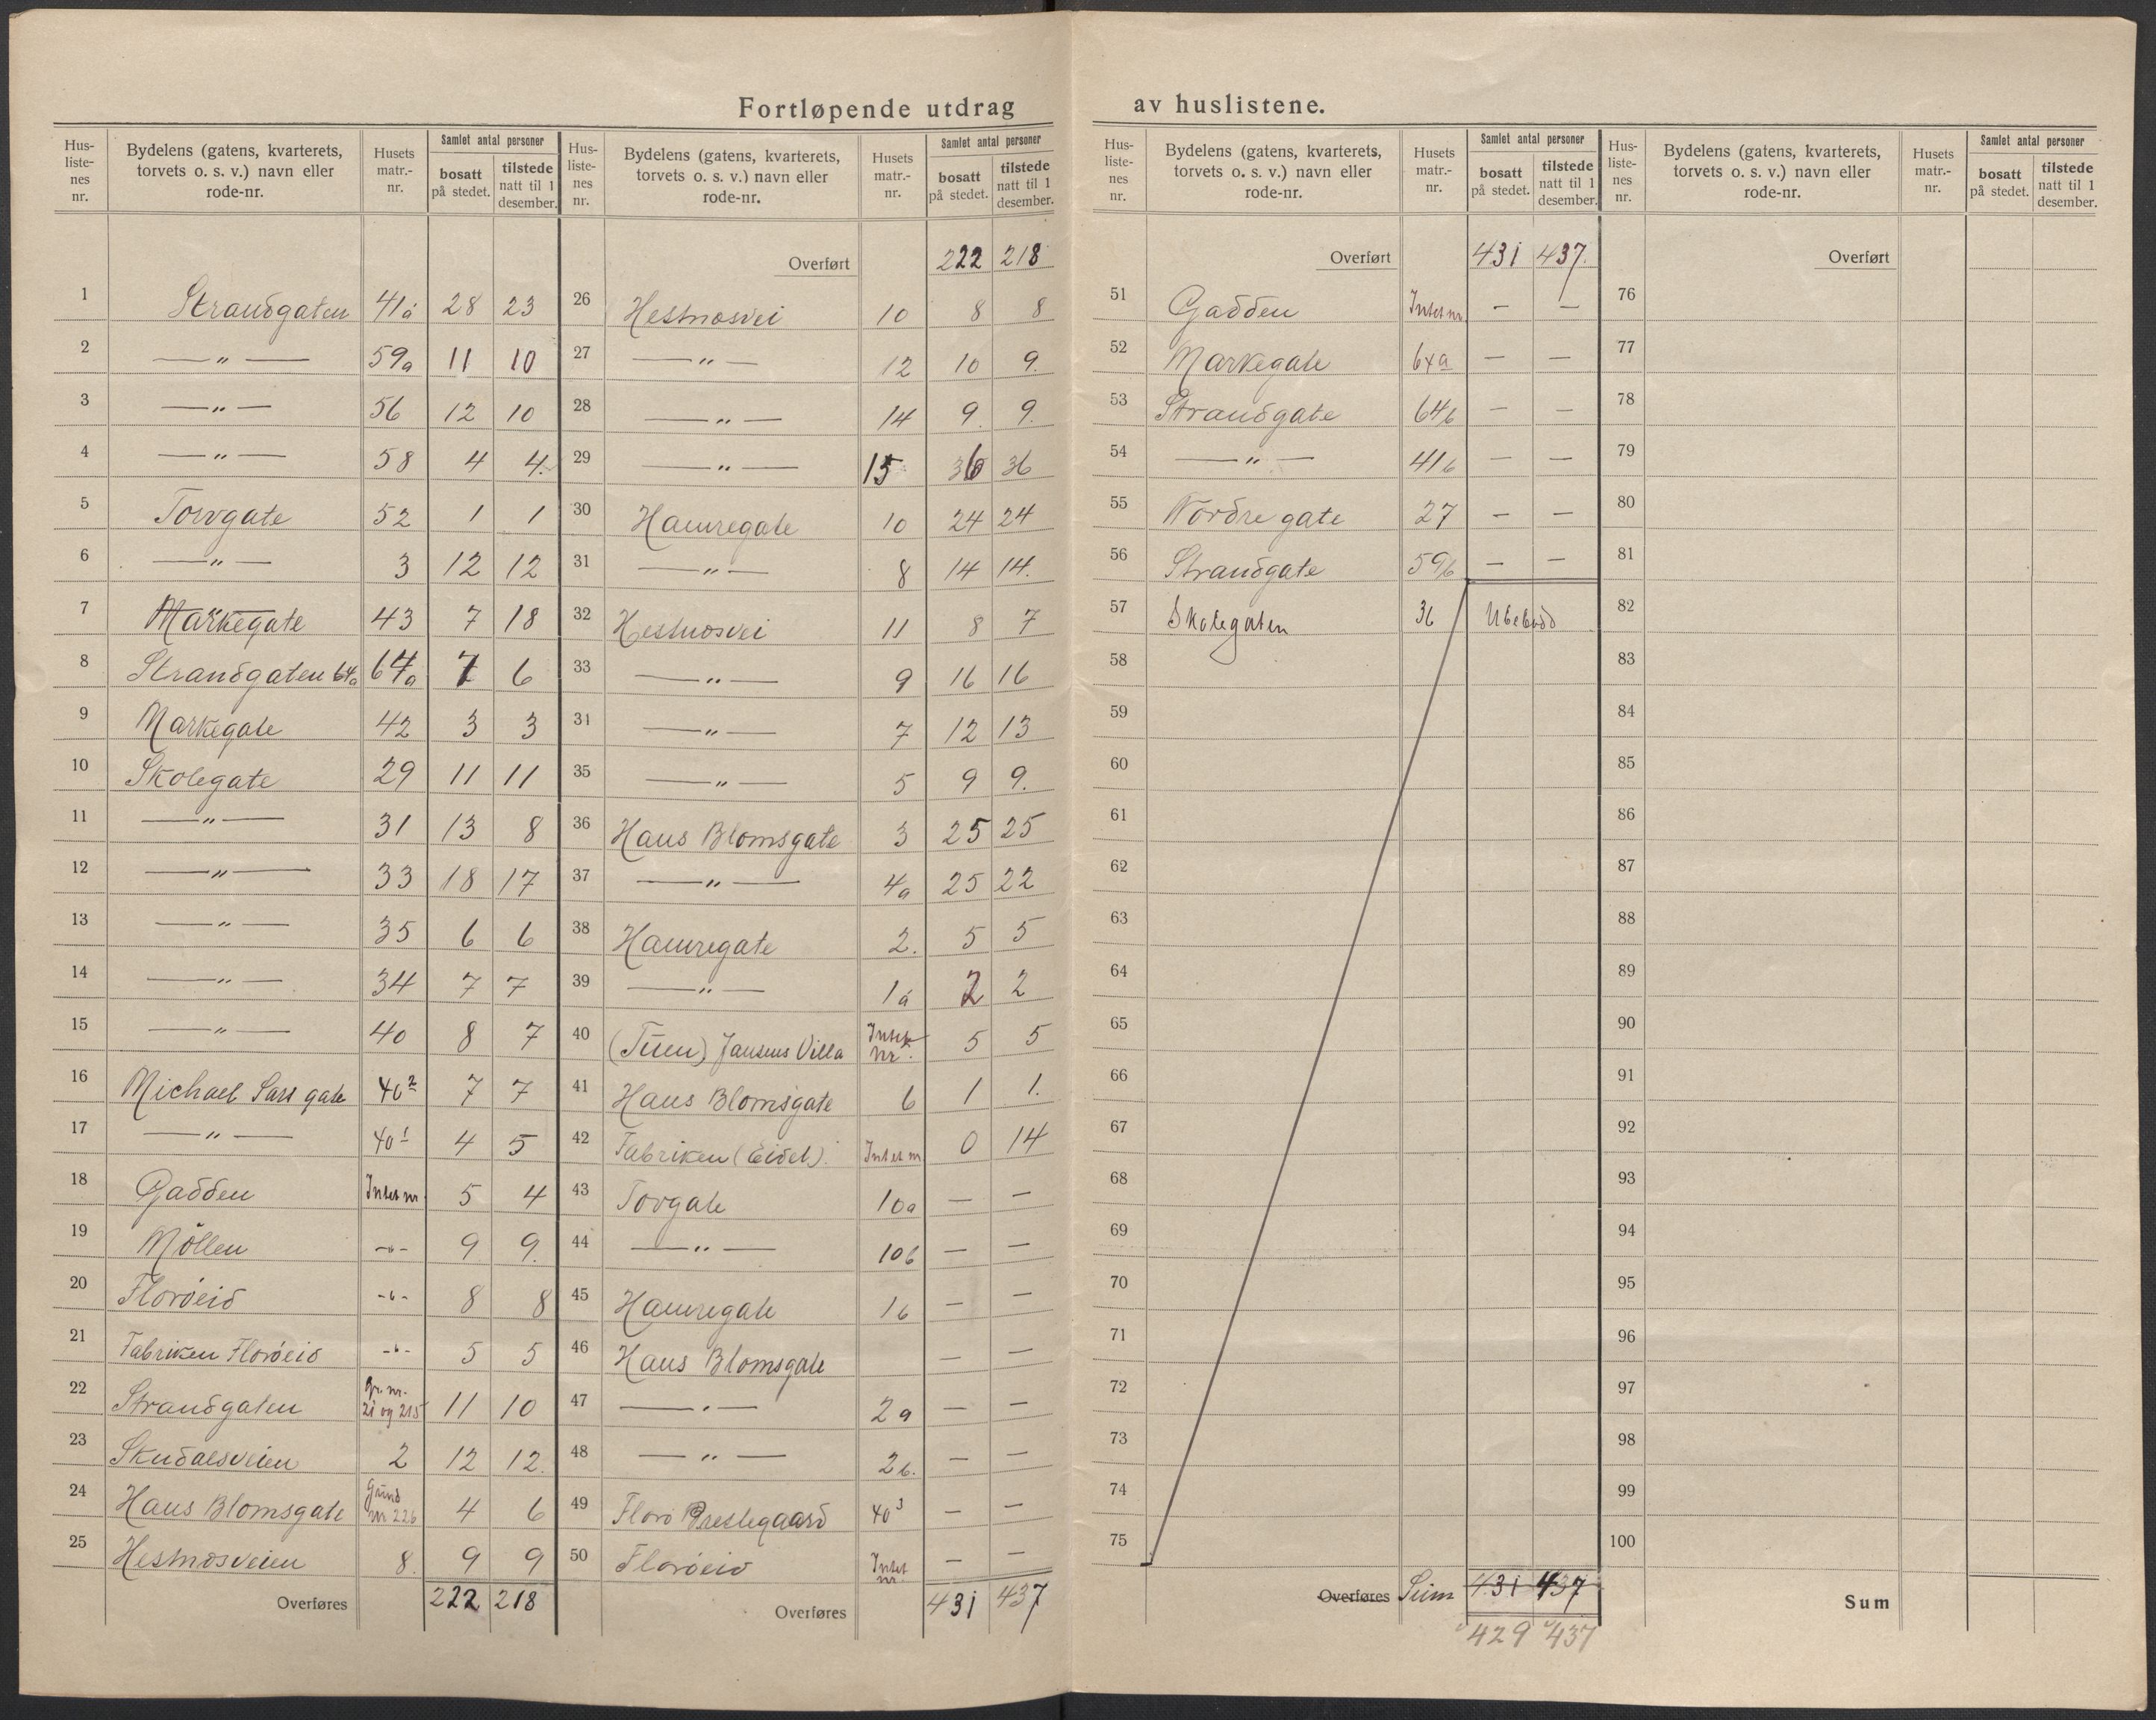 Fortløpende utdrag av huslistene.
Hus-liste-nes nr. | Bydelens (gatens, kvarterets, torvets o. s. v.) navn eller rode-nr. | Husets matr.-nr. | Samlet antal personer | bosatt på stedet. | tilstede natt til 1 desember.
1 Strandgaten 41a 28 23
2 —„— 59a 11 10
3 —„— 56 12 10
4 —„— 58 4 4.
5 Torvgate 52 1 1
6 —„— 3 12 12
7 Markegate 43 7 18
8 Strandgaten 64a 64a 7 6
9 Markegate 42 3 3
10 Skolegate 29 11 11
11 —„— 31 13 8
12 —„— 33 18 17
13 —„— 35 6 6
14 —„— 34 7 7
15 —„— 40 8 7
16 Michael Sars gate 40² 7 7
17 —„— 40¹ 4 5
18 Gadden Intet nr. 5 4
19 Möllen -„- 9 9.
20 Florøeid -„- 8 8
21 Fabriken Florøeid -„- 5 5
22 Strandgaten Gr. nr. 21 og 215 11 10
23 Skudalsveien 2 12 12.
24 Hans Blomsgate Grund nr 226 4 6
25 Hestnesveien 8. 9 9
Overføres 222 218
Hus-liste-nes nr. | Bydelens (gatens, kvarterets, torvets o. s. v.) navn eller rode-nr. | Husets matr.-nr. | Samlet antal personer | bosatt på stedet. | tilstede natt til 1 desember.
Overført 222 218
26 Hestnesvei 10 8 8
27 —„— 12 10 9.
28 —„— 14 9. 9.
29 —„— 15 36 36
30 Hamregate 10 24 24
31 —„— 8 14 14.
32 Hestnesvei 11 8 7
33 —„— 9 16 16
34 —„— 7 12 13
35 —„— 5 9 9.
36 Hans Blomsgate 3 25 25
37 —„— 4a 25 22
38 Hamregate 2. 5 5
39 —„— 1a 2 2
40 (Tuen) Jansens Villa Intet nr. 5 5
41 Hans Blomsgate 6 1 1.
42 Fabriken (Eidet). Intet nr 0 14
43 Torvgate 10a — —
44 —„— 10b — —
45 Hamregate 1b — —
46 Hans Blomsgate — —
47 —„— 2a — —
48 —„— 2b. — —
49 Florö Prestegaard 40³ — —
50 Florøeid Intet nr. — —
Overføres 431 437
Hus-liste-nes nr. | Bydelens (gatens, kvarterets, torvets o. s. v.) navn eller rode-nr. | Husets matr.-nr. | Samlet antal personer | bosatt på stedet. | tilstede natt til 1 desember.
Overført 431 437.
51 Gadden Intet nr. — —
52 Markegate 64a — —
53 Strandgate 64b — —
54 —„— 41b — —
55 Nordre gate 27 — —
56 Strandgate 59b — —
57 Skolegaten 36 Ubebodd
58
59
60
61
62
63
64
65
66
67
68
69
70
71
72
73
74
75
Overføres Sum 431 437
429 437
Hus-liste-nes nr. | Bydelens (gatens, kvarterets, torvets o. s. v.) navn eller rode-nr. | Husets matr.-nr. | Samlet antal personer | bosatt på stedet. | tilstede natt til 1 desember.
Overført
76
77
78
79
80
81
82
83
84
85
86
87
88
89
90
91
92
93
94
95
96
97
98
99
100
Sum